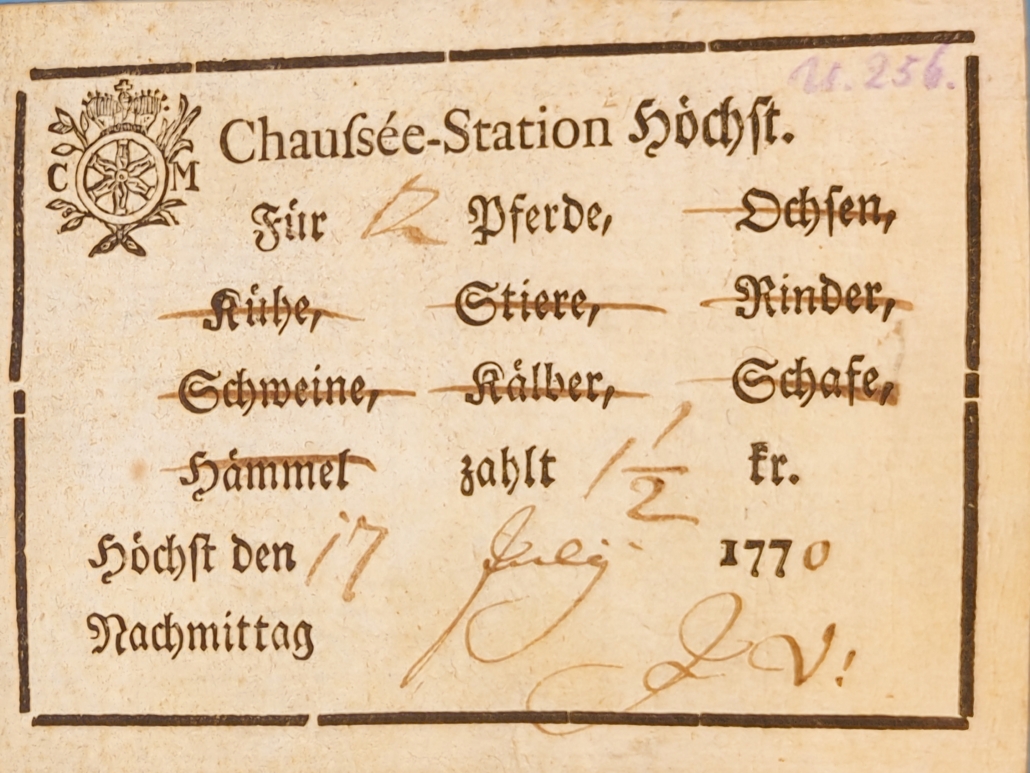 U. 256.
Chauſsée-Station Höchſt.
C M
Für 12 Pferde, Ochſen,
Kühe, Stiere, Rinder,
Schweine, Kälber, Schafe,
Hämmel zahlt 1 1/2 kr.
Höchſt den 17 July 1770
Nachmittag